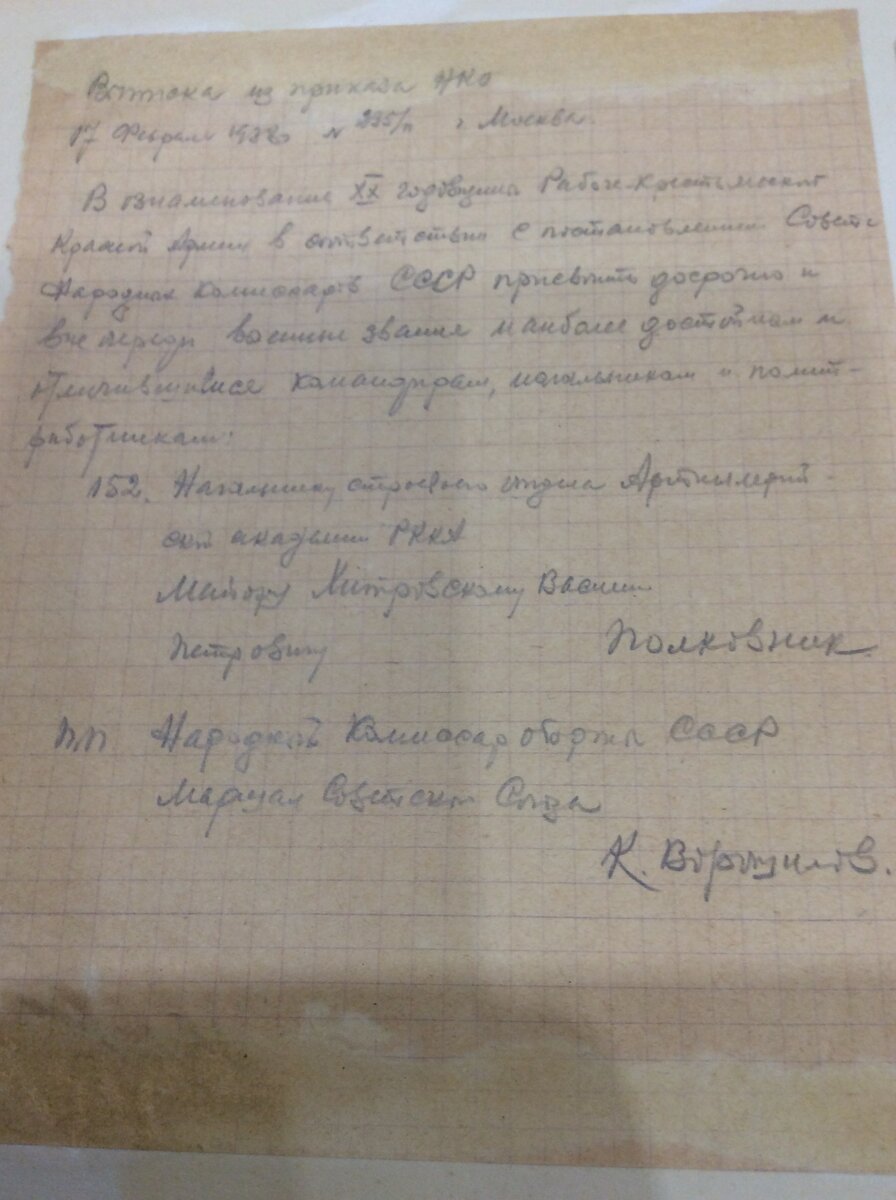 Выписка из приказа НКО
17 Февраля 1938г № 235/п г. Москва.
В ознаменование XX годовщины Рабоче-крестьянской
Красной Армии в соответствии с постановлением Совета
Народных комиссаров СССР присвоить досрочно и
вне очереди военные звания наиболее достойным и
отличившимся командирам, начальникам и полит-
работникам:
152. Начальнику строевого отдела Артиллерий-
ской академии РККА
Майору Хитровскому Василию
Петровичу Полковник.
пп Народный Комиссар обороны СССР
Маршал Советского Союза
К. Ворошилов.